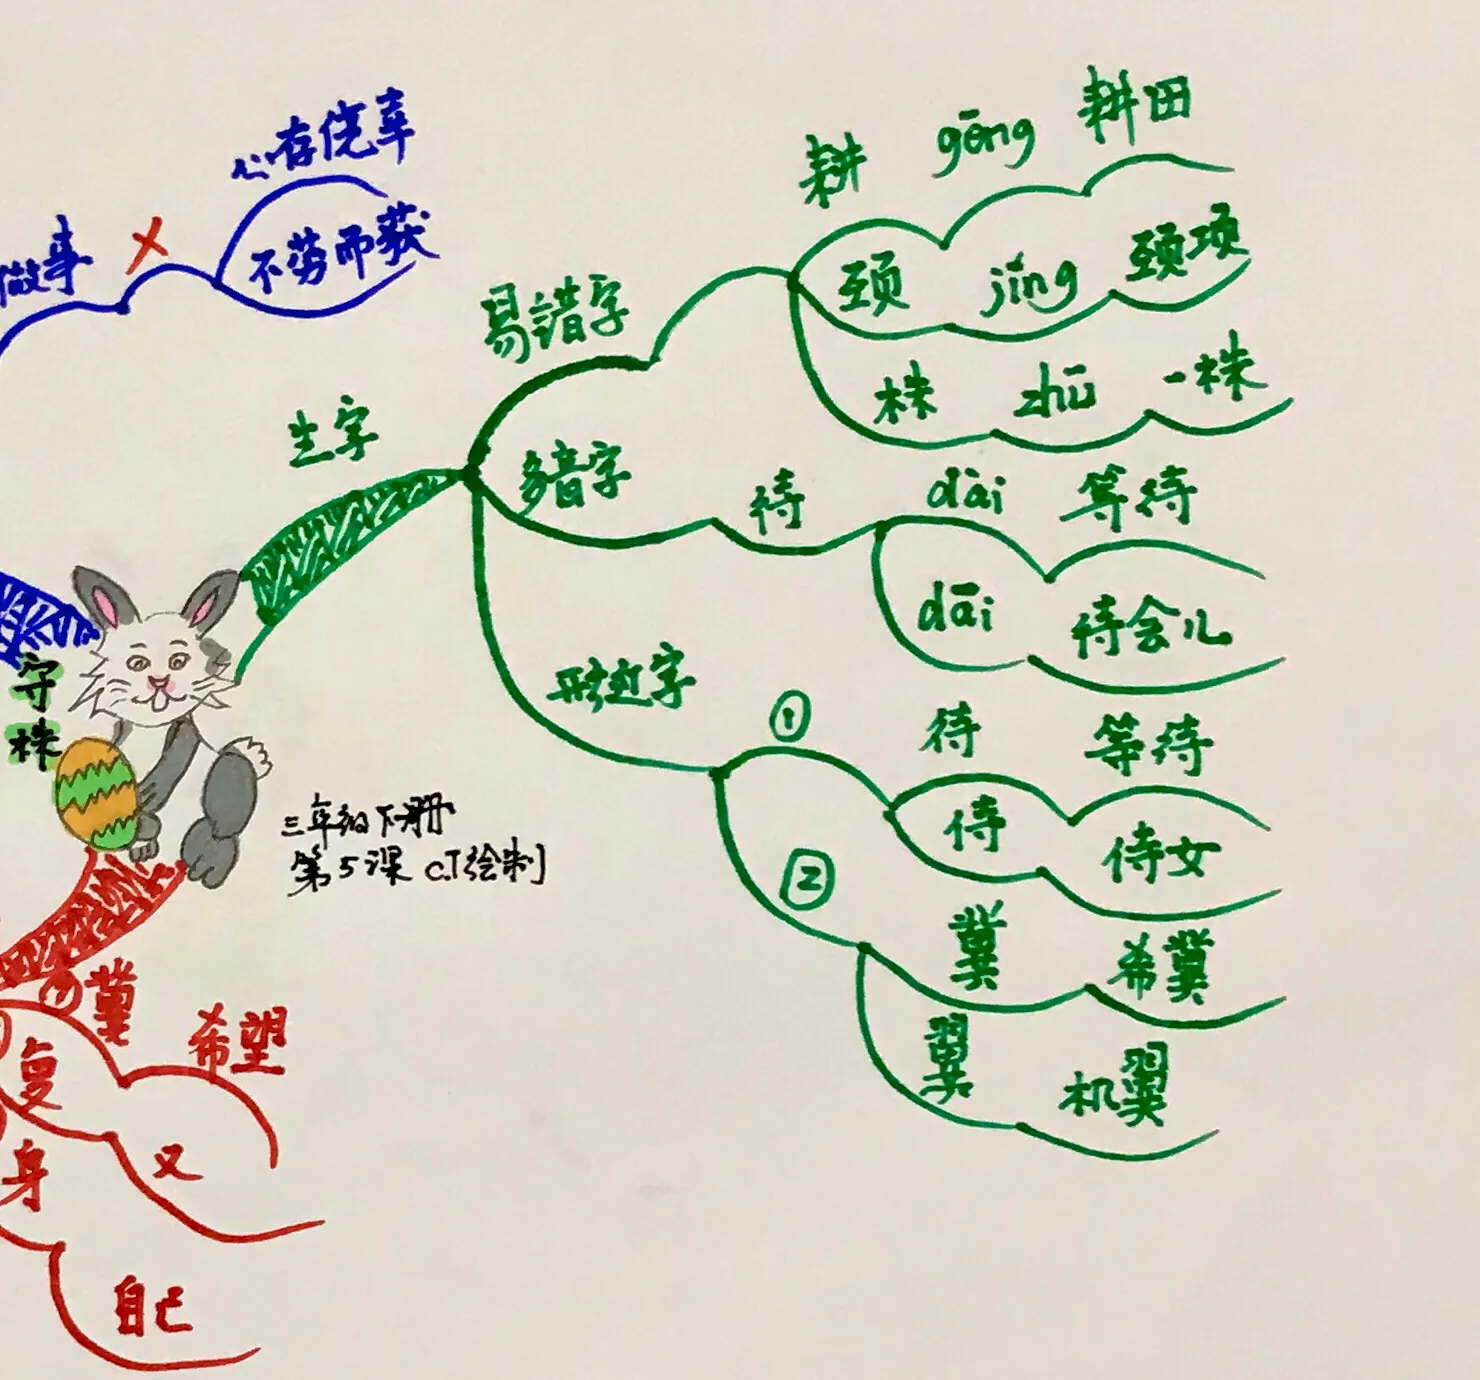 心存侥幸
做事 × 不劳而获
生字
易错字
耕 gēng 耕田
颈 jǐng 颈项
株 zhū 一株
多音字 待
dài 等待
dāi 待会儿
形近字
① 待 等待
侍 侍女
② 冀 希冀
翼 机翼
守
株
三年级下册
第5课 C.T绘制
① 冀 希望
复 又
身 自己